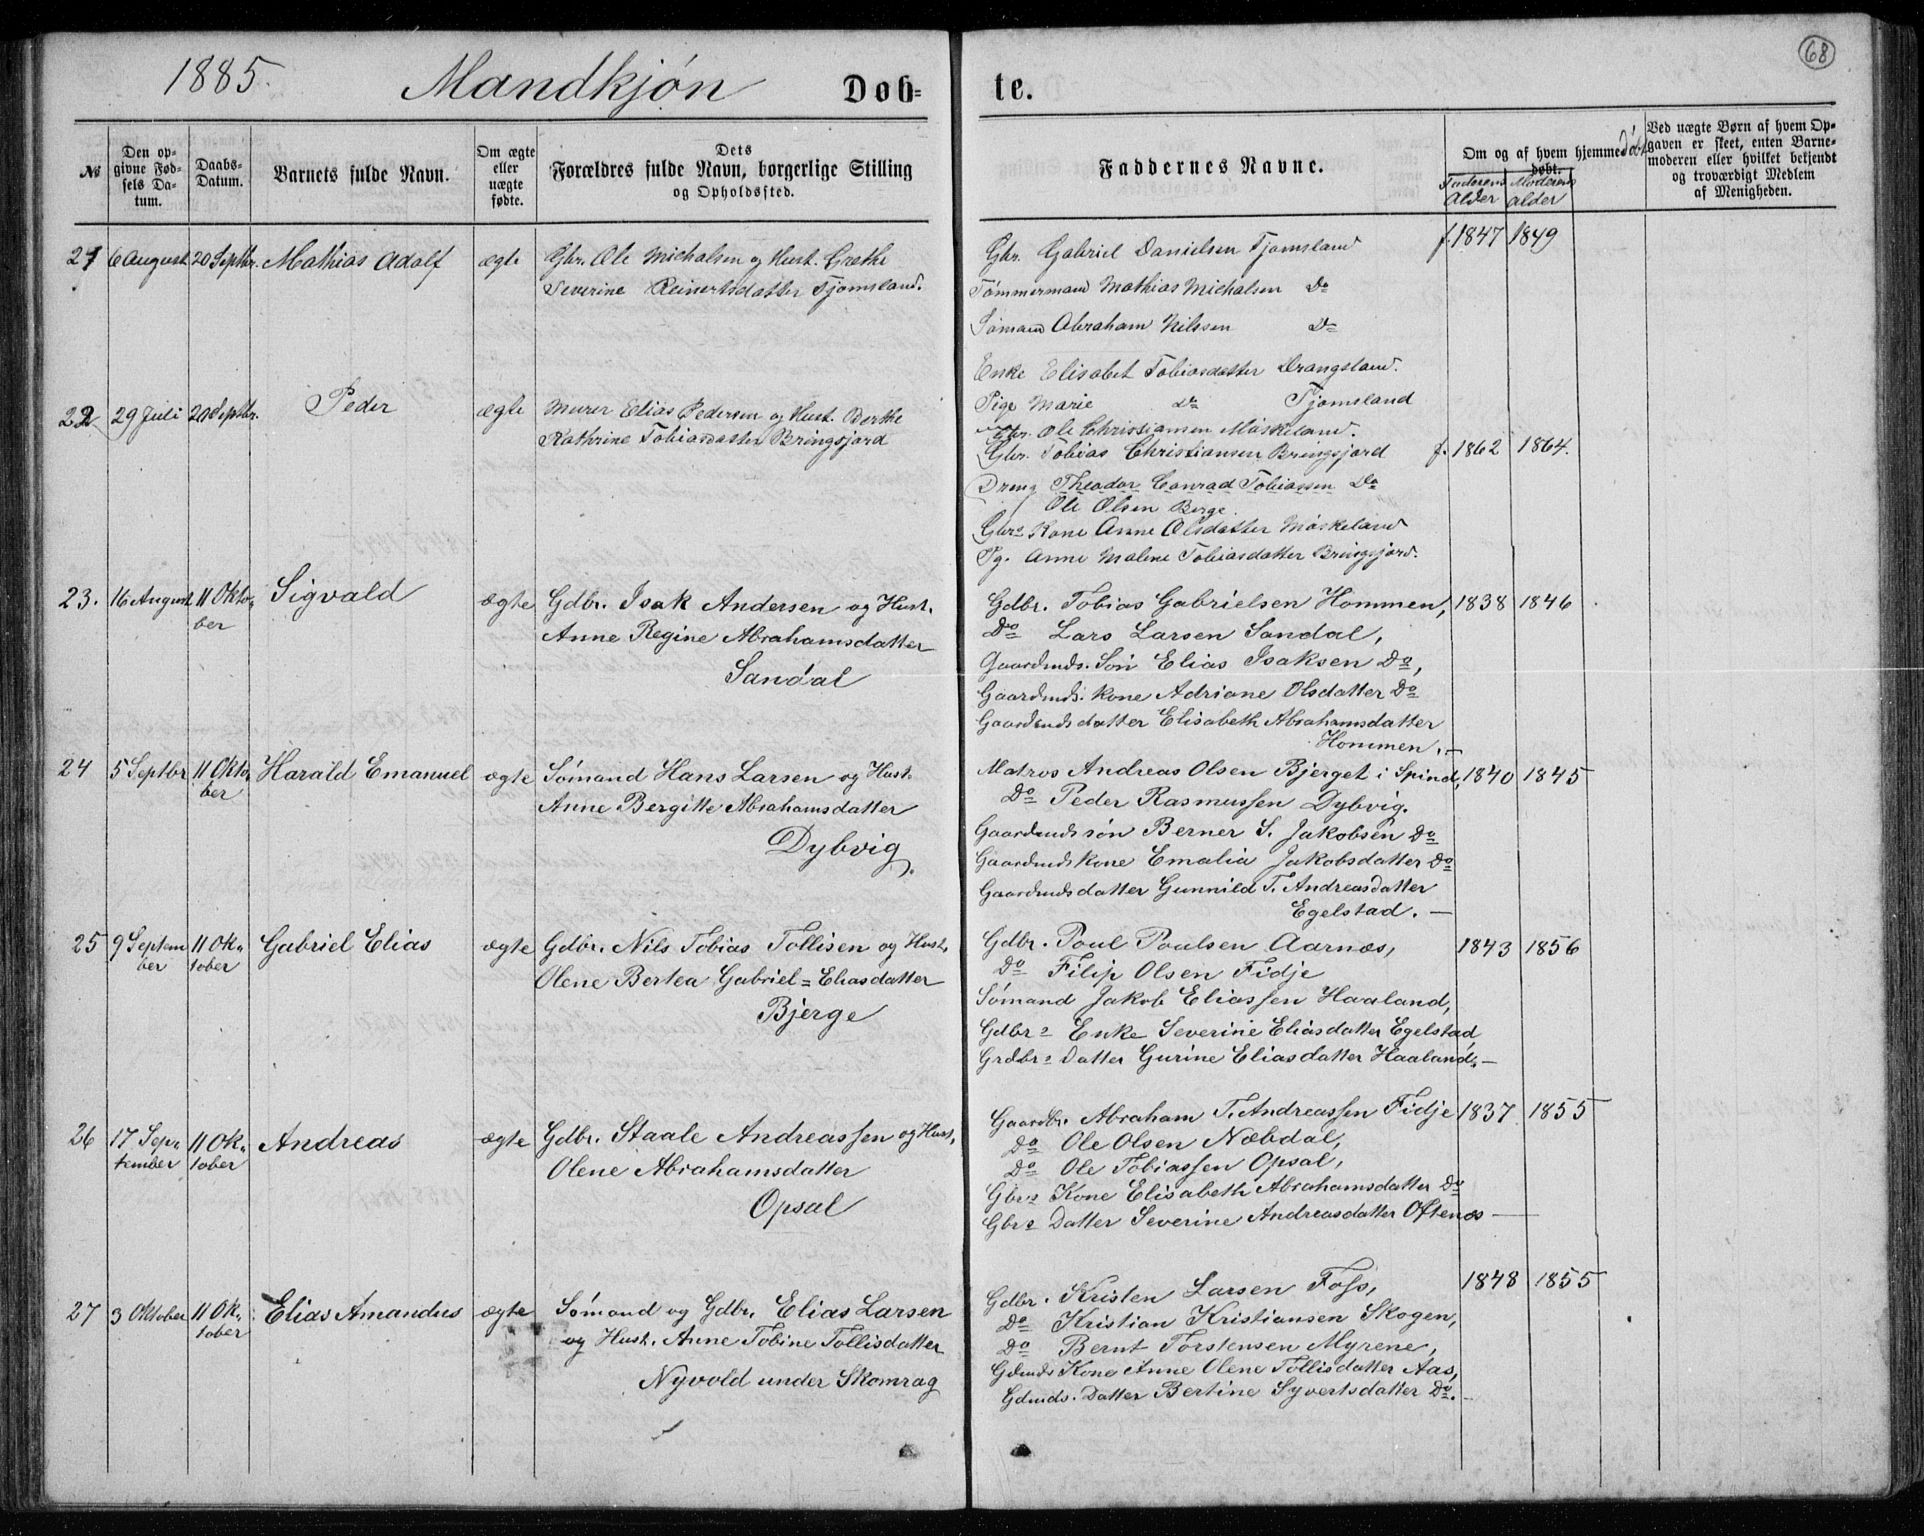 68
1885. Mandkjøn Døb= te.
№
Den op-
givne Fød-
sels Da-
tum.
Daabs-
Datum.
Barnets fulde Navn.
Om ægte
eller
uægte
fødte.
Dets
Forældres fulde Navn, borgerlige Stilling
og Opholdssted.
Faddernes Navne.
Om og af hvem hjemmedøbt
døbt.
Faderens
Alder
Moderens
alder
Ved uægte Børn af hvem Op-
gaven er skeet, enten Barne-
moderen eller hvilket bekjendt
og troværdigt Medlem
af Menigheden.
21 6 August 20 Septbr. Mathias Adolf ægte Gbr. Ole Michalsen og Hust. Grethe
Severine Reinertsdatter Tjomsland.
Gbr. Gabriel Danielsen Tjomsland f. 1847 1849
Tømmermand Mathias Michalsen Do
Sømand Abraham Nilssen Do
Enke Elisabet Tobiasdatter Drangsland.
Pige Marie do Tjomsland
22 29 Juli 20 Septbr. Peder ægte Murer Elias Pedersen og Hust. Berthe
Kathrine Tobiasdatter Bringsjord
Gbr. Ole Christiansen Møskeland.
Gbr. Tobias Christiansen Bringsjord f. 1862 1864.
Dreng Theodor Conrad Tobiassen Do
Ole Olsen Berge.
Gbrs Kone Anne Olsdatter Møskeland
Pg. Anne Malene Tobiasdatter Bringsjord.
23. 16 August 11 Okto-
ber
Sigvald ægte Gdbr. Isak Andersen og Hust.
Anne Regine Abrahamsdatter
Sandal
Gdbr. Tobias Gabrielsen Hommen, 1838 1846
Do Lars Larsen Sandal,
Gaardmds. Søn Elias Isaksen Do,
Gaardmds. kone Adriane Olsdatter Do
Gaardmds datter Elisabeth Abrahamsdatter
Hommen.—
24 5 Septbr 11 Okto-
ber
Harald Emanuel ægte Sømand Hans Larsen og Hust.
Anne Bergitte Abrahamsdatter
Dybvig.
Matros Andreas Olsen Bjerget i Spind, 1840 1845
Do Peder Rasmussen Dybvig.
Gaardmds søn Berner S. Jakobsen Do
Gaardmds kone Emalia Jakobsdatter Do
Gaardmds datter Gunnild T. Andreasdatter
Egelstad.—
25 9 Septem
ber
11 Ok-
tober
Gabriel Elias ægte Gdbr. Nils Tobias Tollisen og Hust.
Olene Bertea Gabriel=Eliasdatter
Bjerge
Gdbr. Poul Poulsen Aarnæs, 1843 1856
Do Filip Olsen Fidje
Sømand Jakob Eliassen Haaland,
Gdbrs Enke Severine Eliasdatter Egelstad
Grdbrs Datter Gurine Eliasdatter Haaland.—
26 17 Sep-
tember
11 Ok-
tober
Andreas ægte Gdbr. Staale Andreassen og Hust.
Olene Abrahamsdatter
Opsal
Gaardbr. Abraham T. Andreassen Fidje 1837 1855
Do Ole Olsen Næbdal,
Do Ole Tobiassen Opsal,
Gbrs Kone Elisabeth Abrahamsdatter Do
Gbrs Datter Severine Andreasdatter Oftenæs—
27 3 Oktober 11 Ok-
tober
Elias Amandus ægte Sømand og Gdbr. Elias Larsen
og Hust. Anne Tobine Tollisdatter
Nyvold under Skomrag
Gdbr. Kristen Larsen Foss, 1848 1855
Do Kristian Kristiansen Skogen,
Do Bernt Torstensen Myrene,
Gdmds Kone Anne Olene Tollisdatter Aas,
Gdmds. Datter Bertine Syvertsdatter Do.—